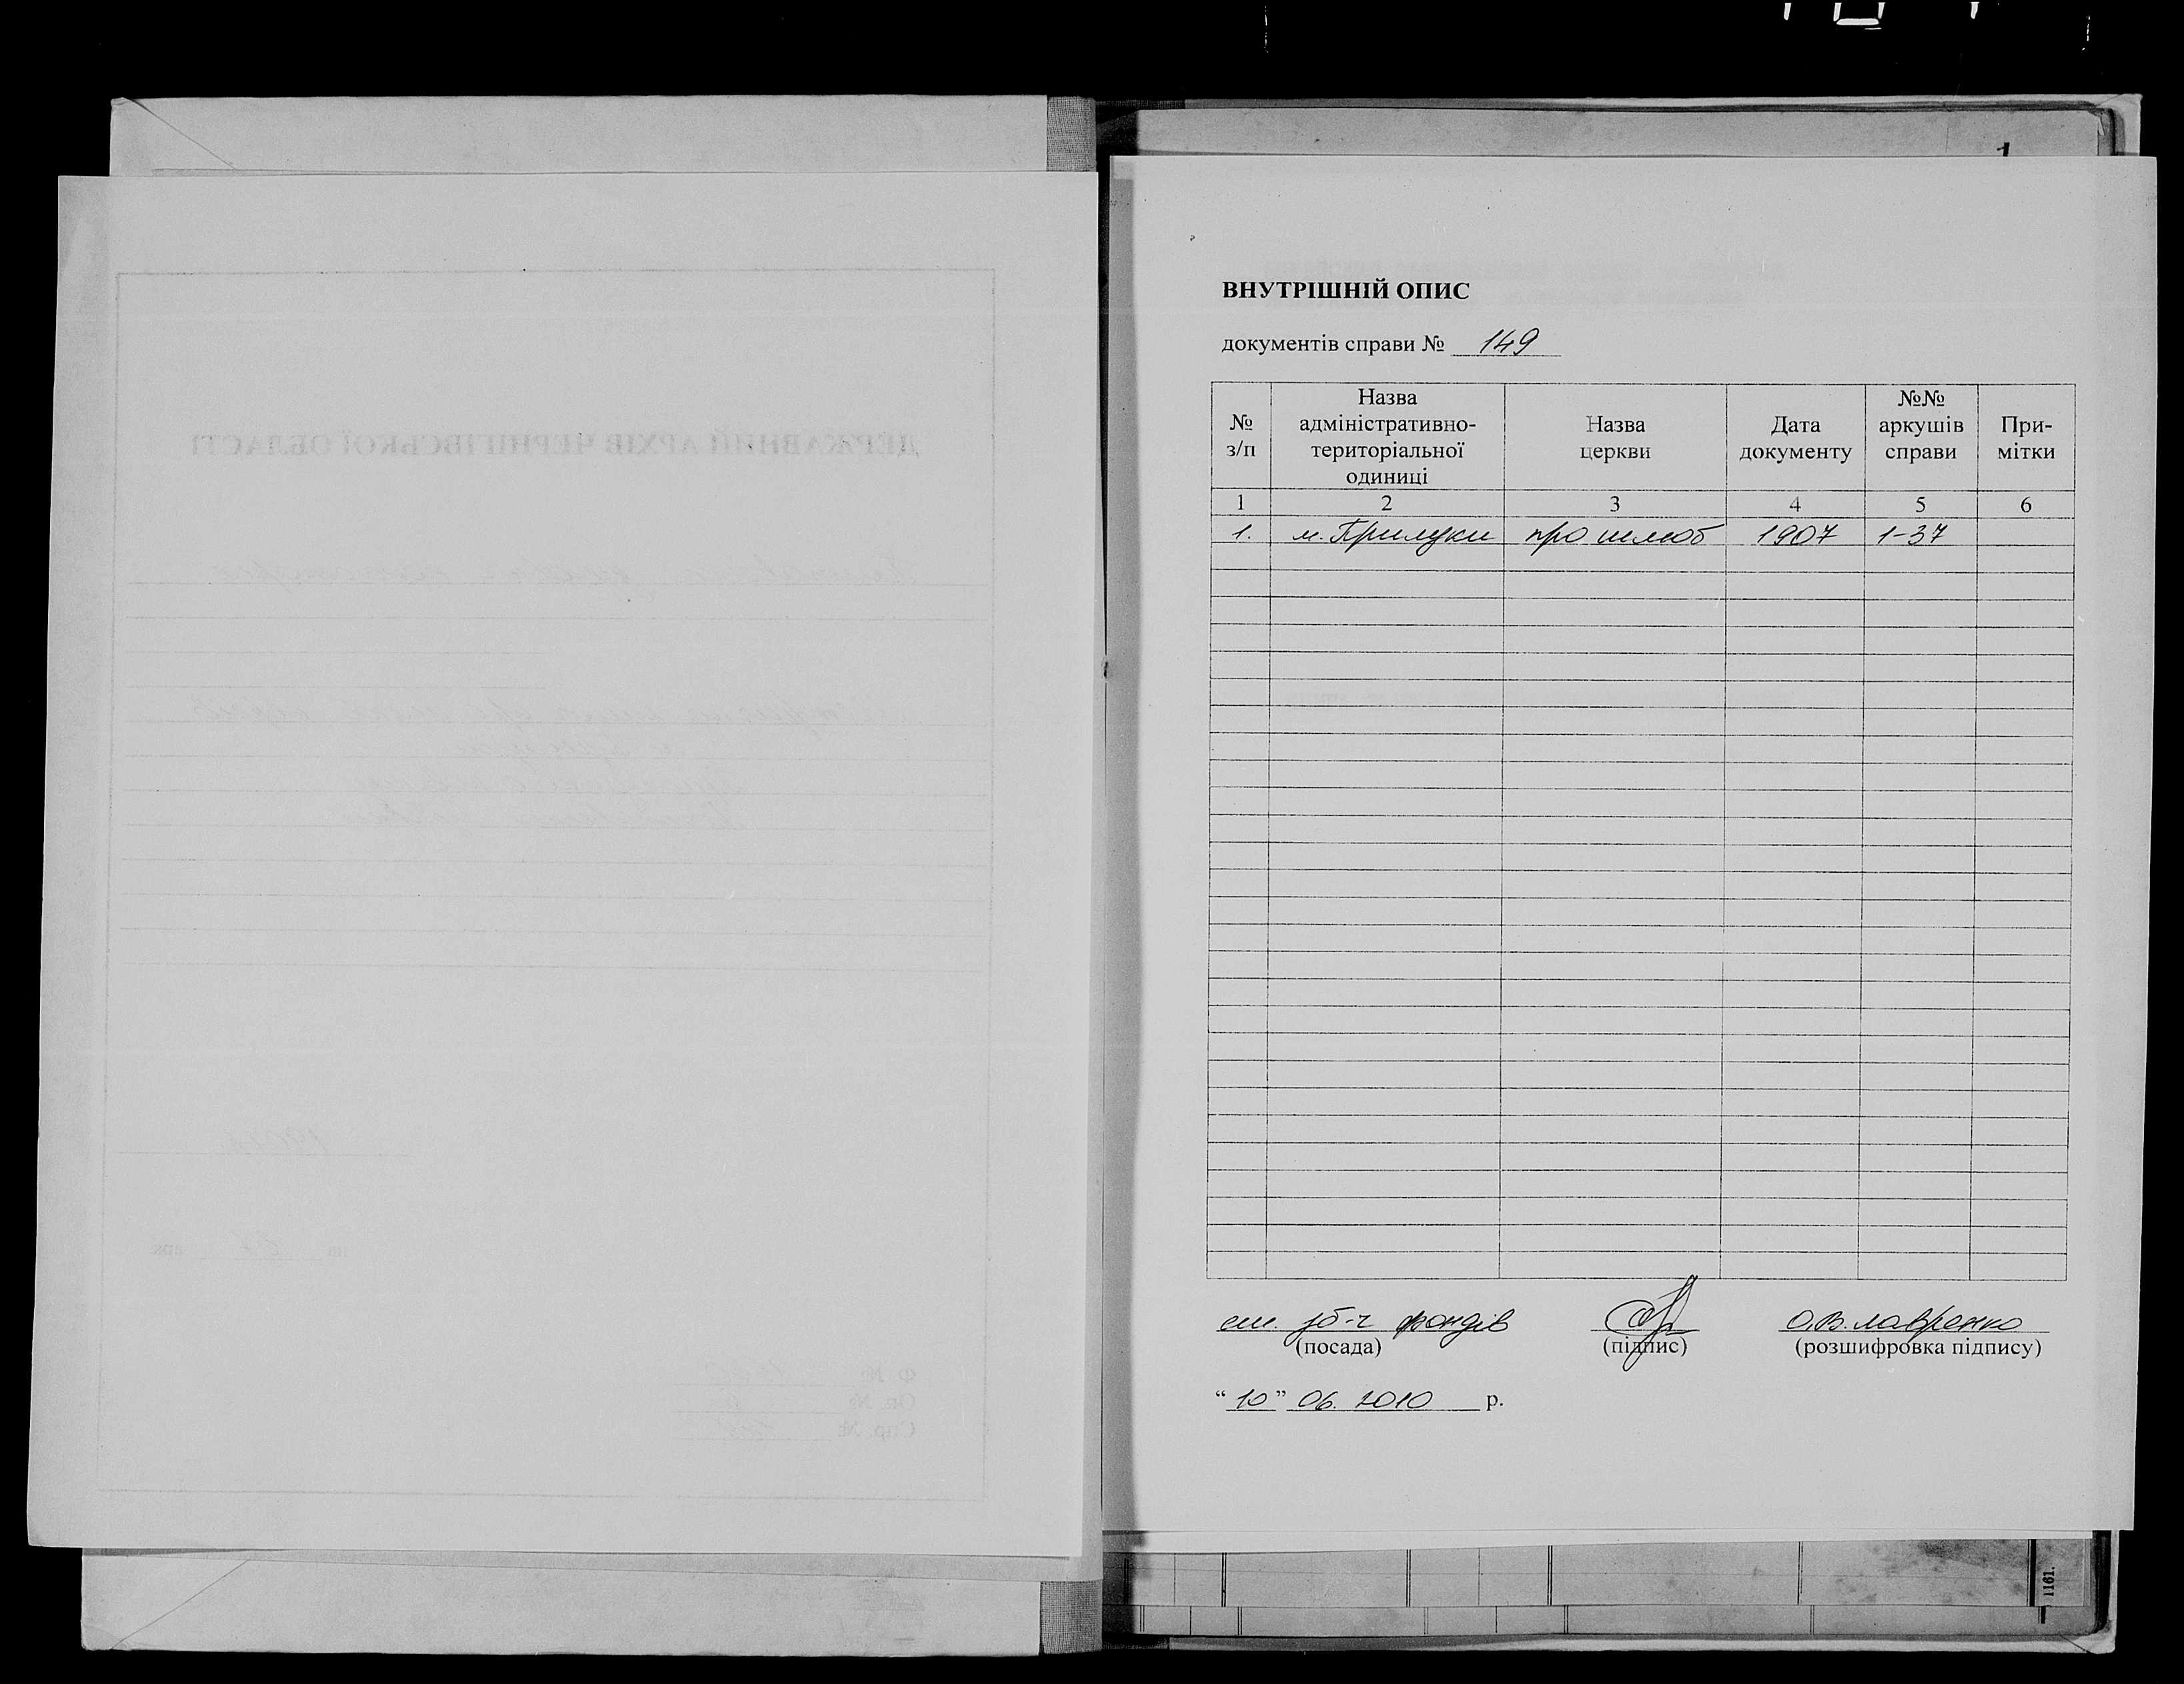 ДЕРЖАВНИЙ АРХІВ ЧЕРНІГІВСЬКОЇ ОБЛАСТІ
Ф. №
Оп. №
Спр. №
1
ВНУТРІШНІЙ ОПИС
документів справи № 149
№ з/п
Назва адміністративно-територіальної одиниці
Назва церкви
Дата документу
№№ аркушів справи
При-мітки
1 2 3 4 5 6
1. м. Прилуки про шлюб 1907 1-37
фондів О.В. Лавренко
(посада) (підпис) (розшифровка підпису)
“10” 06. 2010 р.
1161.